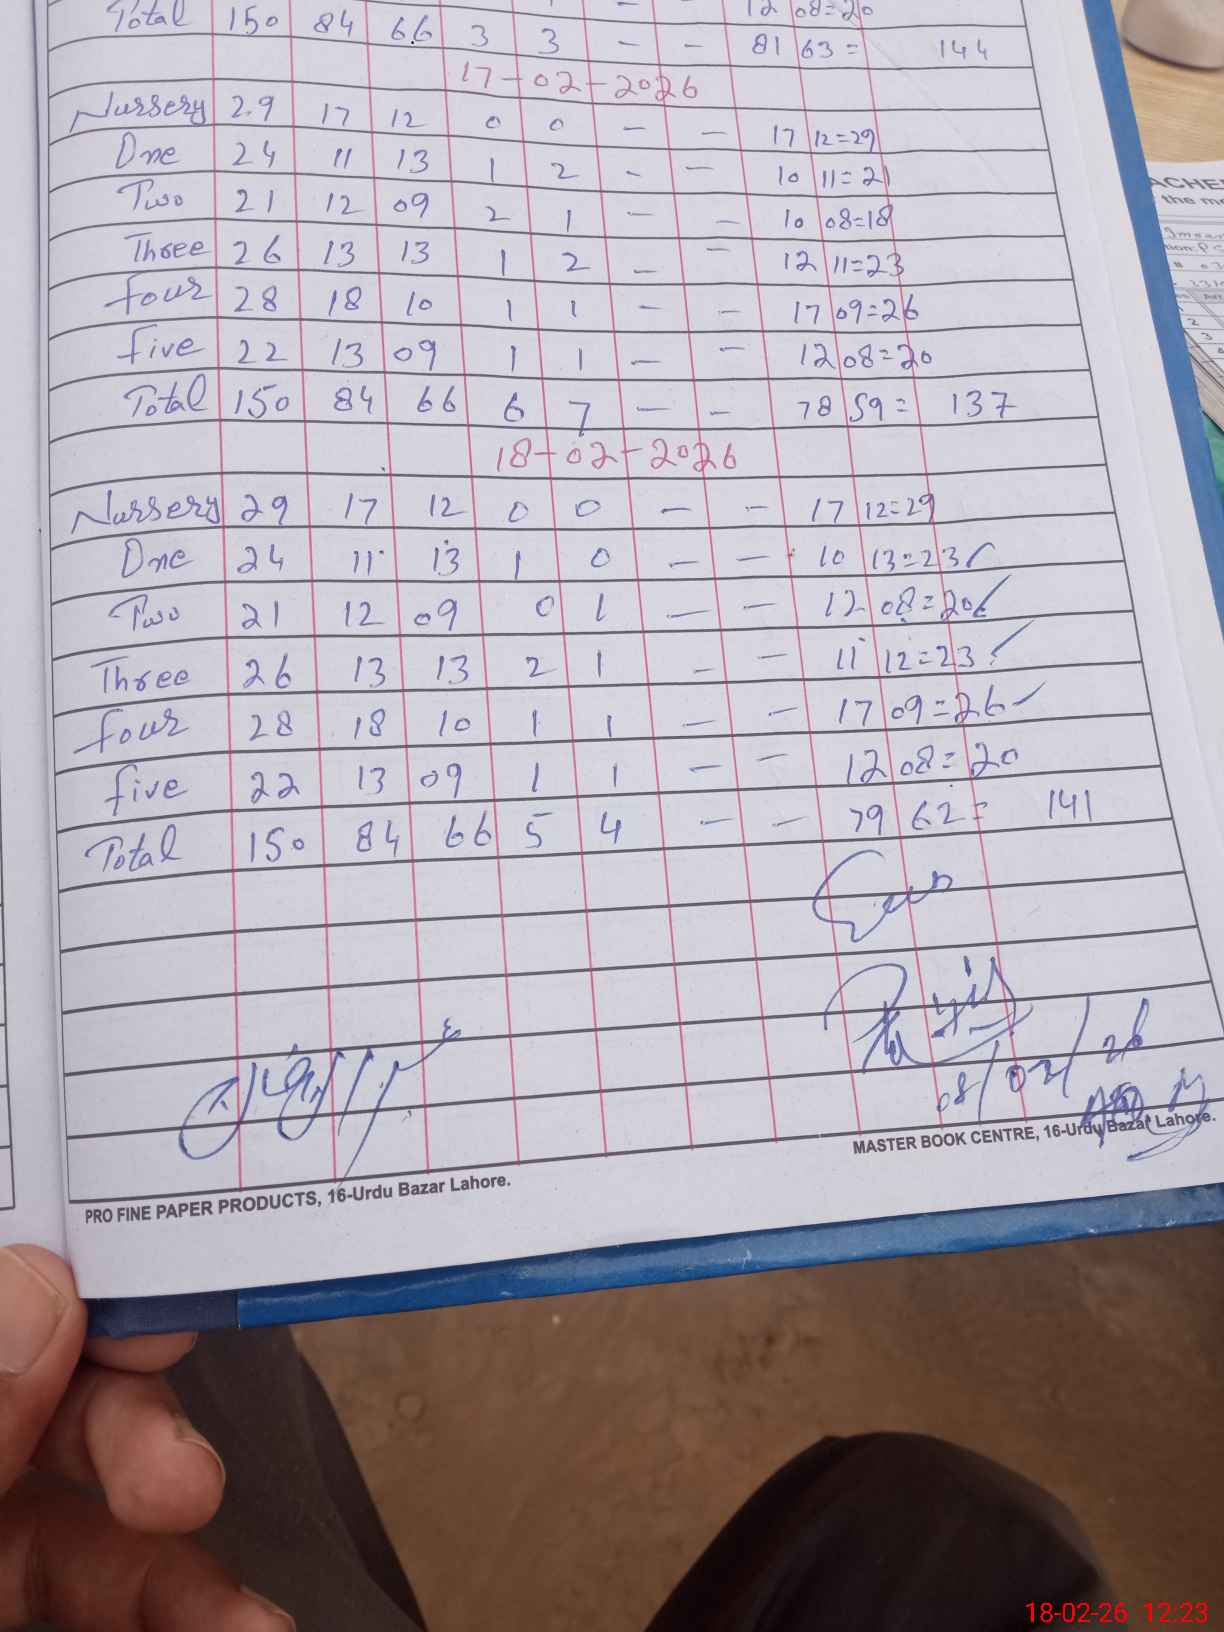 12 08=20
Total 150 84 66 3 3 - - 81 63= 144
17-02-2026
Nursery 29 17 12 0 0 - - 17 12=29
One 24 11 13 1 2 - - 10 11=21
Two 21 12 09 2 1 - - 10 08=18
Three 26 13 13 1 2 - - 12 11=23
four 28 18 10 1 1 - - 17 09=26
five 22 13 09 1 1 - - 12 08=20
Total 150 84 66 6 7 - - 78 59= 137
18-02-2026
Nursery 29 17 12 0 0 - - 17 12=29
One 24 11 13 1 0 - - 10 13=23
Two 21 12 09 0 1 - - 12 08=20
Three 26 13 13 2 1 - - 11 12=23
four 28 18 10 1 1 - - 17 09=26
five 22 13 09 1 1 - - 12 08=20
Total 150 84 66 5 4 - - 79 62= 141
08/02/26
PRO FINE PAPER PRODUCTS, 16-Urdu Bazar Lahore.
MASTER BOOK CENTRE, 16-Urdu Bazar Lahore.
the
18-02-26 12:23